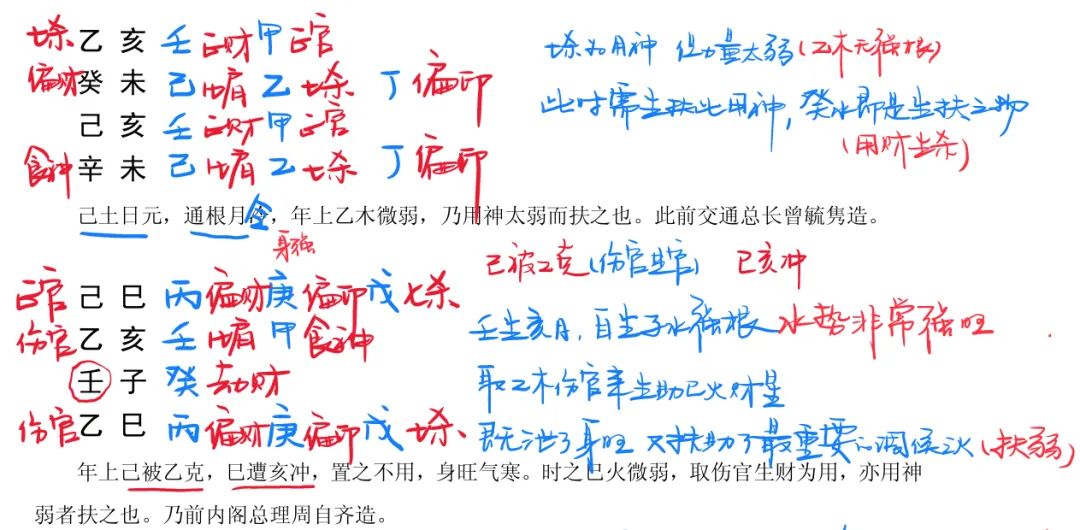 七杀 乙 亥 壬 正财 甲 正官
偏财 癸 未 己 比肩 乙 七杀 丁 偏印
己 亥 壬 正财 甲 正官
食神 辛 未 己 比肩 乙 七杀 丁 偏印
七杀为用神 但力量太弱(乙木无强根)
此时需生扶此用神,癸水即是生扶之物
(用财生杀)
己土日元,通根月令,年上乙木微弱,乃用神太弱而扶之也。此前交通总长曾毓隽造。
身强
正官 己 巳 丙 偏财 庚 偏印 戊 七杀
伤官 乙 亥 壬 比肩 甲 食神
壬 子 癸 劫财
伤官 乙 巳 丙 偏财 庚 偏印 戊 七杀
己被乙克(伤官见官) 巳亥冲
壬生亥月,自坐子水强根 水势非常强旺
取乙木伤官来生助巳火财星
既泄了身旺 又扶助了最重要的调候之火(扶弱)
年上己被乙克,巳遭亥冲,置之不用,身旺气寒。时之巳火微弱,取伤官生财为用,亦用神
弱者扶之也。乃前内阁总理周自齐造。